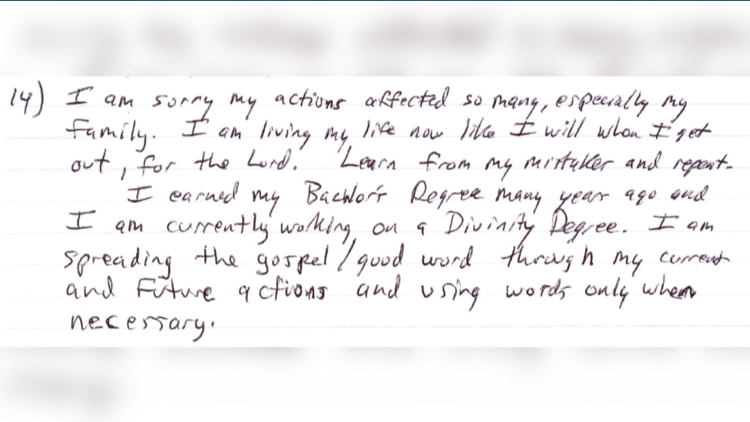 14) I am sorry my actions affected so many, especially my
family. I am living my life now like I will when I get
out, for the Lord. Learn from my mistakes and repent.
I earned my Bachlor's Degree many years ago and
I am currently working on a Divinity Degree. I am
spreading the gospel / good word through my current
and future actions and using words only when
necessary.